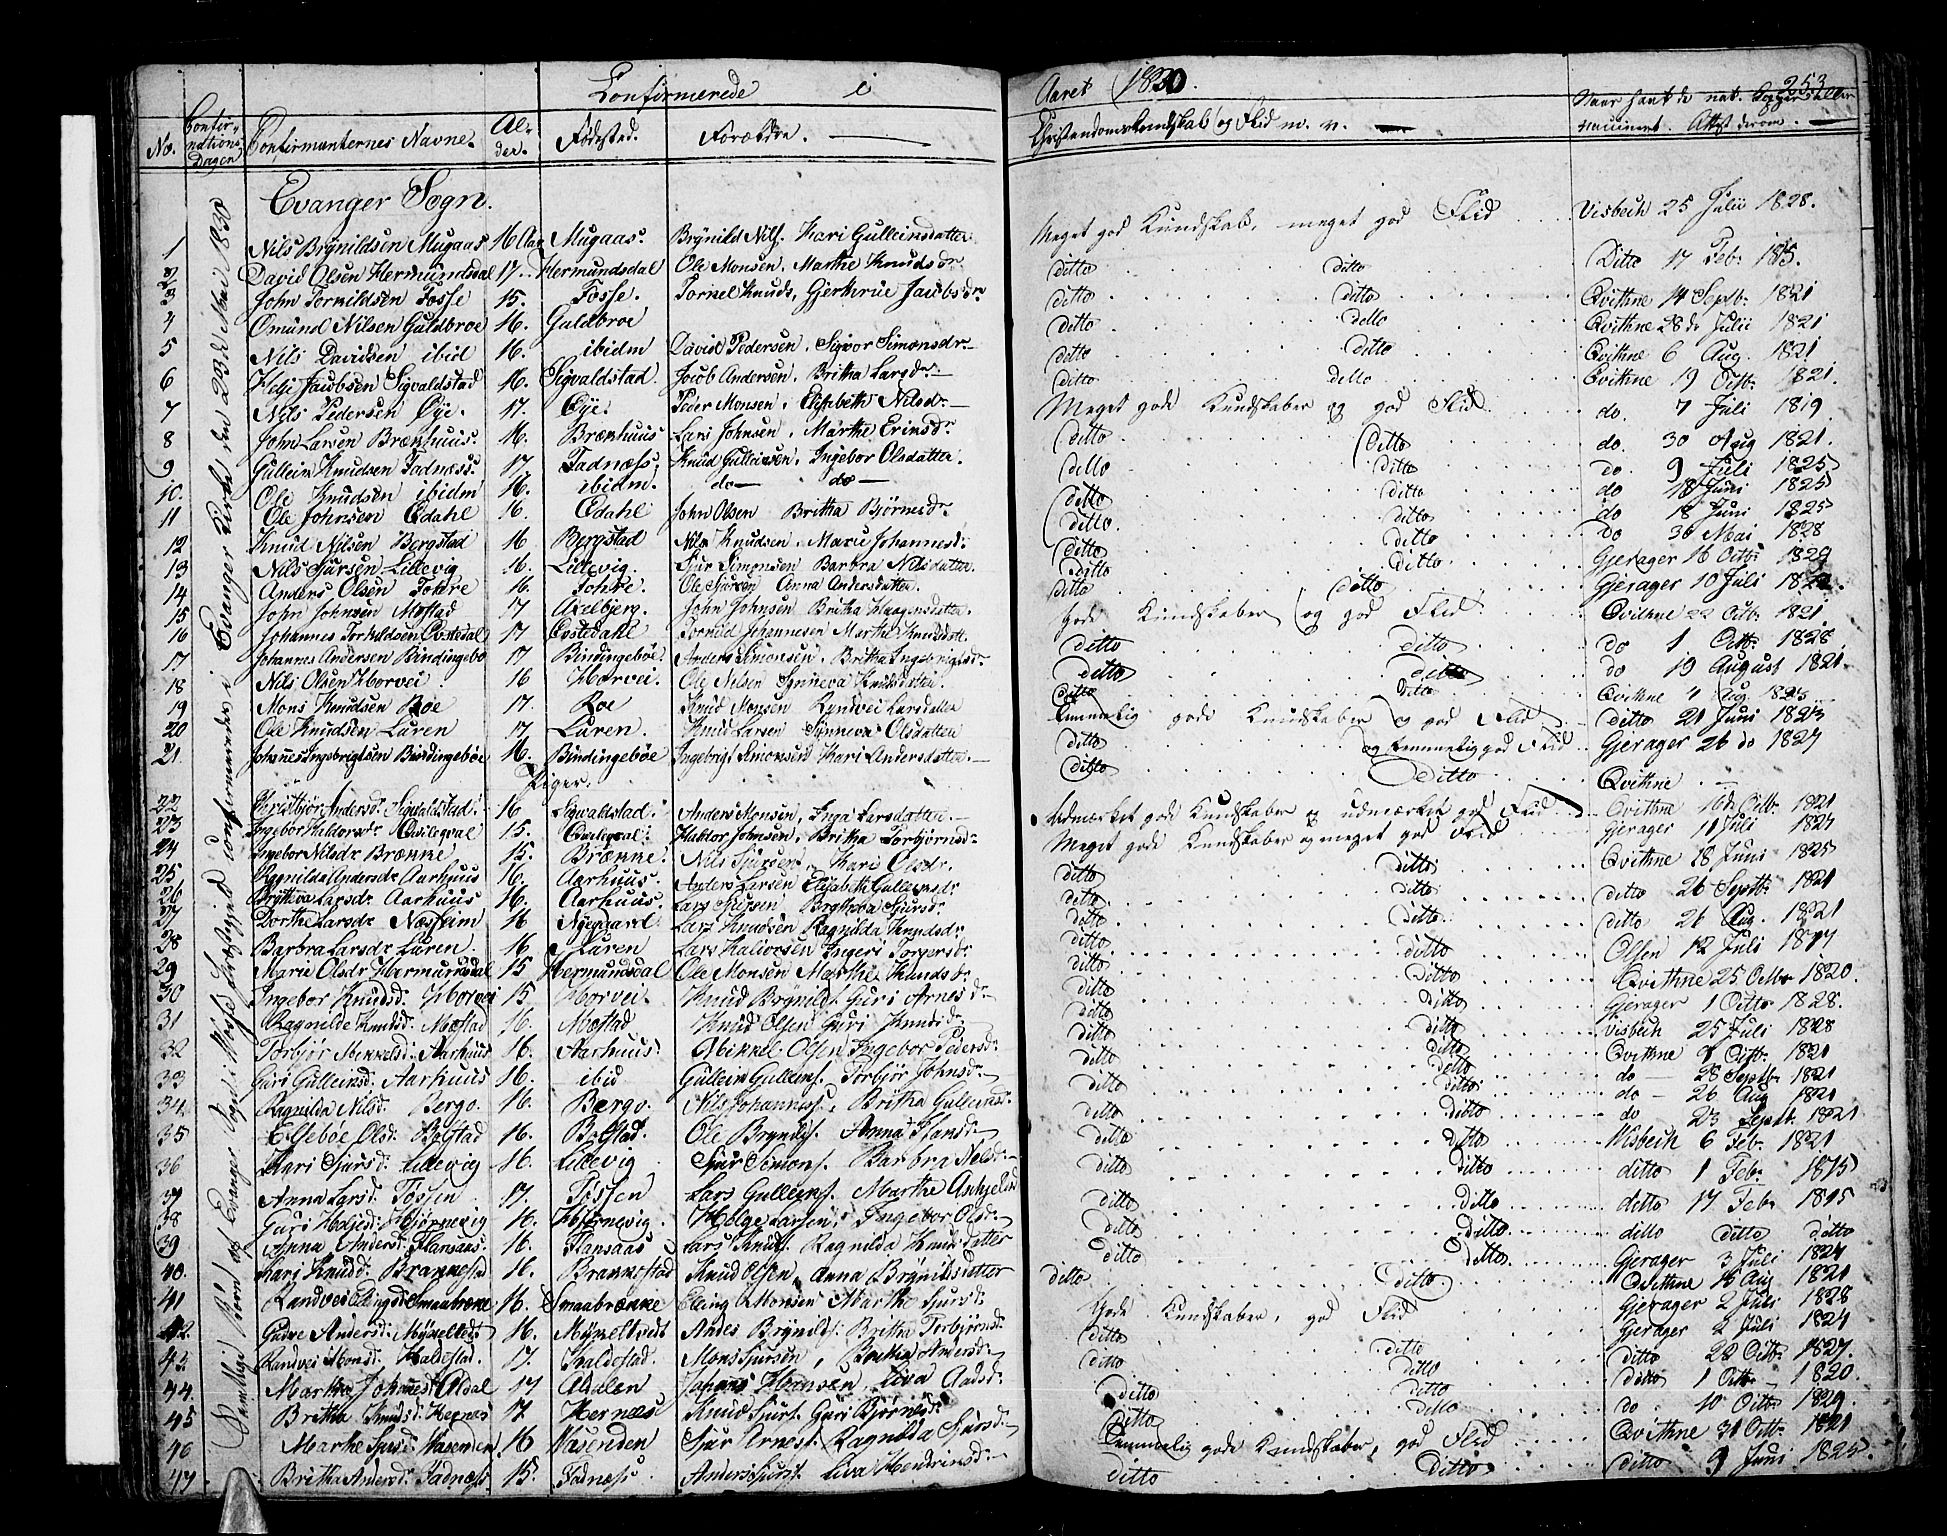 Confirmerede i
Aaret 1830.
253
No. Confirmations Dagen Confirmanternes Navne. Alder. Fødested. Forældre.
Christendoms Kundskab og Flid m. v.
Evanger Sogn.
1 Nils Brynildsen Mugaas 16 Aar Mugaas. Brynild Nils. Kari Gulleinsdatter Meget god Kundskab, meget god Flid Visbech 25 Julii 1828.
2 David Olsen Hermundsdal 17. Hermundsdal Ole Monsen. Marthe Knudsdr ditto ditto Ditto 17 Feb.
3 John Tornildsen Fosse 15. Fosse. Tornel Knuds, Gjerthrue Jacobsdr ditto ditto Qvithne 14 Septbr 1821
4 Omund Nilsen Guldbroe 16. Guldbroe ditto ditto Qvithne 28 de Julii 1821
5 Nils Davidsen ibid 16. ibidm David Pedersen. Sigvor Simonsdr ditto ditto Qvithne 6 Aug. 1821
6 Helje Jacobsen Sigvaldstad 16. Sigvaldstad. Jacob Andersen. Britha Larsdr ditto ditto Qvithne 19 Octbr 1821.
7 Nils Pedersen Øye. 17. Øye. Peder Monsen. Elisabeth Nilsdr Meget gode Kundskaber og god Flid do. 7 Juli 1819
8 John Larsen Brækhuus. 16. Brækhuus Lars Johnsen. Marthe Ericsdr ditto Ditto do. 30 Aug 1821.
9 Gullein Knudsen Fadnæss. 17 Fadnæss. Knud Gulleinsen. Ingebor Olsdatter. ditto ditto do. 9 Juli 1825
10. Ole Knudsen ibidm 16. ibidm. do do ditto ditto do 18 Juni 1825
11 Ole Johnsen Edahl 16. Edahl John Olsen Britha Bjørnsdr ditto ditto do 18 Juni 1825
12 Knud Nilsen Bergstad 16 Bergstad Nils Knudsen. Marie Johannesd. ditto ditto Do 30 Mai 1828
13 Nils Sjursen Lillevig 16. Lillevig. Sjur Simonsen Barbra Nilsdatter ditto ditto Gjerager 16 Octbr 1829
14 Anders Olsen Fokre 16. Fokre. Ole Sjursen Anna Andersdatter. ditto ditto Gjerager 10 Juli
15 John Johnsen Mæstad 17 Axelberg. John Johnsen Britha Haagensdatter. Gode Kundskaber og god Flid Qvithne 22 Octbr 1821
16 Johannes Torkildsen Evstedal 17 Evstedahl Johannesen Marthe Knudsdatt. ditto ditto do 1 Octbr 1828.
17 Johannes Andersen Bindingebø 17 Bindingebøe. Anders Simonsen. Britha Ingebrigtsd. ditto ditto do 19 August 1821.
18 Nils Olsen Horvei 16 Horvei. Ole Nilsen Synneva Knudsdatter. ditto ditto Qvithne
19 Mons Knudsen Roe 17. Roe Knud Monsen Ryndvei Larsdatter Temmelig gode Kundskaber og god Flid ditto 21 Juni 1823
20 Ole Knudsen Luren 17. Luren. Knud Larsen Synneva Olsdatter ditto og temmelig god Flid Gjerager 26 do 1827
21. Johannes Ingebrigtsen Bindingebøe 16. Bindingebøe Ingebrigt Simonsen Kari Andersdatter. ditto ditto Qvithne
Piger.
22 Christbjør Andersdr Sigvaldstad 16 Sigvaldstad. Anders Monsen, Inga Larsdatter. Udmærket gode Kundskaber og udmærket god Flid Qvithne 16 de Octbr 1821
23 Ingebor Haldorsdr Qvileqval 15. Qvileqval. Haldor Johnsen, Britha Torbjørnsdr Meget gode Kundskaber og meget god Flid Gjerager 11 Juli 1827
24 Ingebor Nilsdr Brænne 15. Brænne. Nils Sjursen, Kari Olsdr. ditto ditto Qvithne 18 Juni 1825
25 Ragnilda Andersdr Aarhuus 16. Aarhuus. Anders Larsen Elisabeth Gulleinsdr ditto ditto ditto 26 Septbr 1821
26 Brytteva Larsdr Aarhuus 16. Aarhuus. Lars Sjursen Brytteva Sjursdr. ditto ditto ditto 26 Aug. 1821
27 Dorthe Larsdr Næsheim 16 Nyegaard Lars Knudsen Ragnilda Knudsdr ditto ditto Olsen 12 Juli
28 Barbra Larsdr Luren. 16 Luren. Lars Halvorsen Ingeri Torgersdr ditto ditto Qvithne 25 Octbr 1820.
29 Marie Olsdr Hermundsdal 15 Hermundsdal Ole Monsen Marthe Knudsdr ditto ditto Gjerager 1 Octbr 1828.
30 Ingebor Knudsd. Horvei 15 Horvei. Knud Brynilds. Guri Arnesdr ditto ditto Visbech 25 Juli 1828
31 Ragnilde Knudsd. Mæstad 16. Mæstad Knud Olsen Guri Knudsdr ditto ditto Qvithne 9 Octbr 1821
32 Torbjør Mikkelsd. Aarhuus 16. Aarhuus. Mikkel Olsen Ingebor Pedersdr ditto ditto do 28 Septbr 1821
33 Guri Gulleinsd. Aarhuus 16. ibid Gullein Gulleins. Torbjør Johnsdr ditto ditto do 26 Aug 1821
34 Ragnilda Nilsd. Bergo. 16. Bergo. Nils Johanness. Britha Gulleinsdr ditto ditto do 23 Septbr 1821
35 Elsebøe Olsd. Bolstad 16. Bolstad. Ole Brynilds. Anna Hansdr ditto ditto Wisbech 6 Febr 1821
36 Kari Sjursd. Lillevig 16. Lillevig Sjur Simons. Barbra Nilsdr ditto ditto ditto 1 Febr 1815
37 Anna Larsd. Fossen 17. Fossen Lars Gulleins. Marthe ditto ditto ditto 17 Feb. 1815
38 Guri Heljesd. Hjørnevig 16. Hjørnevig. Helge Larsen, Ingebor Olsdr ditto ditto ditto ditto ditto
39 Anna Andersd. Flansaas. 16. Flansaas Lars Knuds. Ragnilda Knudsdatter ditto ditto Gjerager 3 Juli 1824
40. Kari Knudsd. Brannestad 16. Brannestad Knud Olsen, Anna Brynildsdatter ditto ditto Qvithne 18 Aug 1821
41 Randvei Ellingsd. Smaabrekke 16. Smaabrække Elling Monsen Marthe Sjursd. Gode Kundskaber, god Flid Gjerager 2 Juli 1828
42. Andersd. Myxeltvedt 16. Myxeltvedt Anders Brynilds. Britha Torbjørnsd. ditto ditto Gjerager 2 Juli 1821
43. Randvei Monsd. Haldestad. 17. Haldestad. Mons Sjursen, Britha Andersd. ditto ditto ditto 28 Octbr 1827.
44. Martha Johannesd. Aldal 17 Aldalen Hansen, Liva ditto ditto ditto 1 Octbr 1820
45 Britha Knudsd. Hernæs 17. Hernæs Knud Sjurs. Guri Bjørnsd. ditto ditto do. 10 Octbr 1829.
46 Marthe Sjursd. Vasenden 16 Vasenden Sjur Arnes. Ragnilda Sjursd. Temmelig gode Kundskaber, god Flid Qvithne 31 Octbr 1821
47 Britha Andersd. Fadnæss 15. Fadnæss Anders Sjurs. Liva Hendricsd. ditto ditto ditto 9 Juni 1825